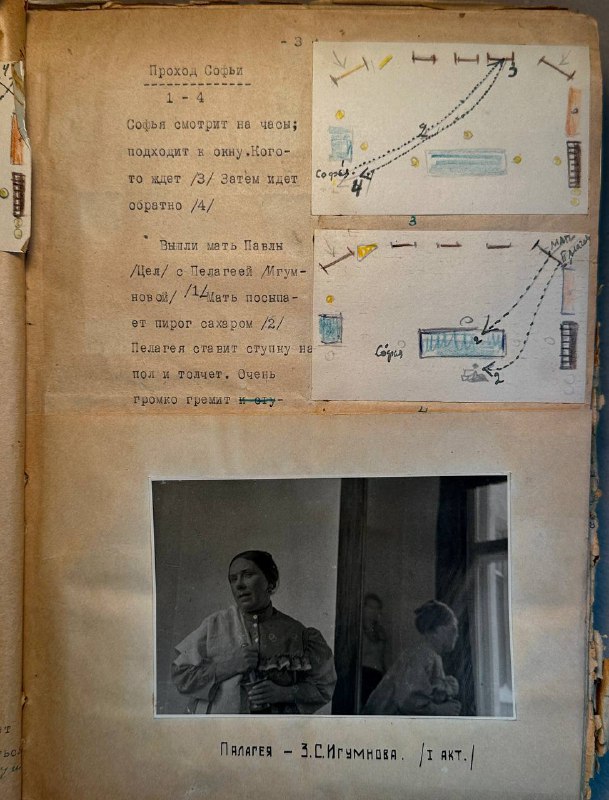 - 3
Проход Софьи
1 - 4
Софья смотрит на часы;
подходит к окну.Кого-
то ждет /3/ Затем идет
обратно /4/
Вышли мать Павлы
/Цел/ с Пелагеей /Игум-
новой/ /1/ Мать посыпа-
ет пирог сахаром /2/
Пелагея ставит ступку на
пол и толчет. Очень
громко гремит и сту-
3
2
Софья
4
3
Мать
Софья
2
2
Палагея – З.С.Игумнова. /I акт./